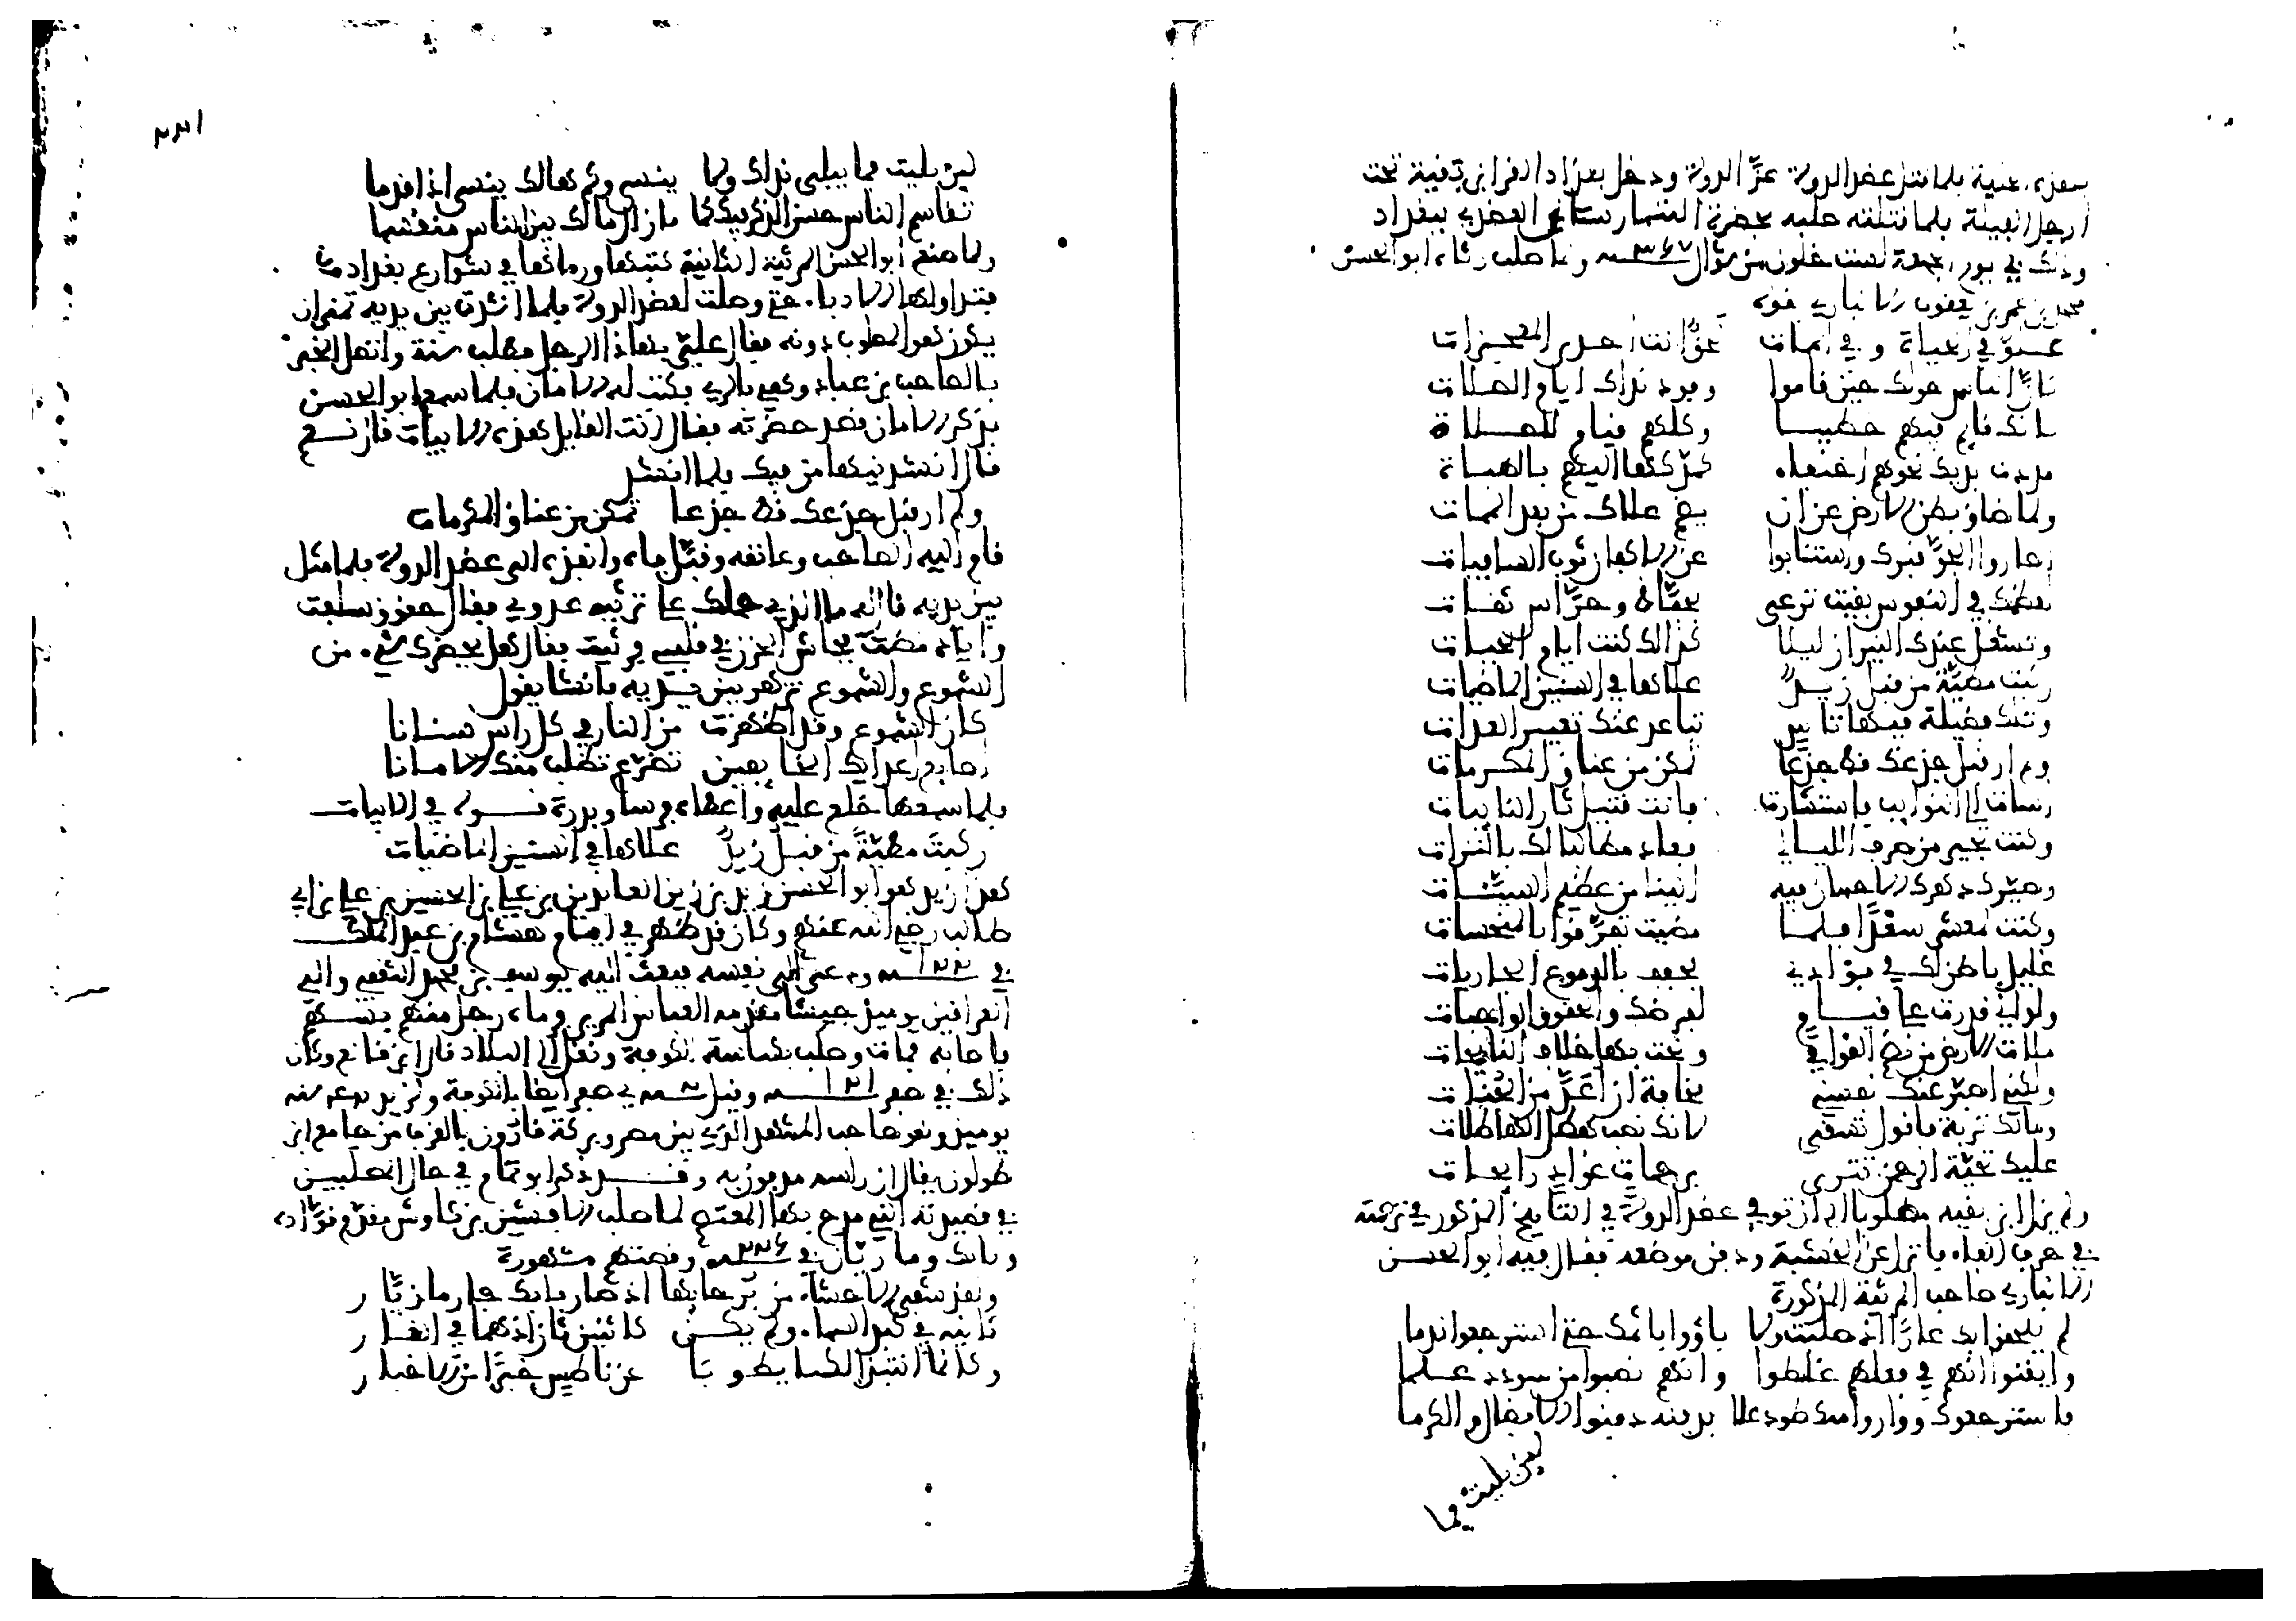 بعزه عنية فلما قتل عضد الدولة عزّ الدولة ودخل بغداد القى ابن بقية تحت
ارجل الفيلة فلما قتلته صلبه بحضرة البيمارستان العضدي ببغداد
وذلك في يوم الجمعة لست خلون من شوال ٣٦٧ ـنة ولما صلب رثاه ابو الحسن
محمد بن عمر بن يعقوب الانباري بقوله
علوّ في الحياة وفي الممات لحقٌّ انت احدى المعجزات
كانّ الناس حولك حين قاموا وفود نداك ايام الصلات
كانك قايم فيهم خطيبا وكلهم قيام للصلاة
مددت يديك نحوهم احتفاء كمدّكها اليهم بالهبات
ولما ضاق بطن الارض عن ان يضم علاك من بعد الممات
اصاروا الجوّ قبرك واستنابوا عن الاكفان ثوب السافيات
لعظمك في النفوس بقيت ترعى بحفّاظ وحرّاس ثقات
وتشعل عندك النيران ليلا كذالك كنت ايام الحيات
ركبت مطيّة من قبل زيدٌ علاها في السنين الماضيات
وتلك فضيلة فيها تاسٍ تباعد عنك تعيير العدات
ولم ار قبل جذعك قط جذعا تمكن من عناق المكرمات
اسات الى النوايب فاستثارت فانت قتيل ثار النايبات
وكنت تجير من صرف الليالي فعاد مطالبا لك بالترات
وصيّر دهرك الاحسان فيه الينا من عظيم السيّئات
وكنت لمعشر سعدًا فلما مضيت تفرّقوا بالمنحسات
غليل باطن لك في فؤادي يخفف بالدموع الجاريات
ولو اني قدرت على قيام لفرضك والحقوق الواجبات
ملات الارض من نظم القوافي ونحت بها خلاف النايحات
ولكني اصبّر عنك نفسي مخافة ان اعدّ من الجنات
ومالك تربة فاقول تسقى لانك نصب هطل الهاطلات
عليك تحيّة الرحمن تترى برحمات غوادٍ رايحات
ولم يزل ابن بقية مصلوبا الى ان توفي عضد الدولة في التاريخ المذكور في ترجمته
في حرف الفاء فانزل عن الخشبة ودفن موضعه فقال فيه ابو الحسن
الانباري صاحب المرثية المذكورة
لم يلحقوا بك عارًا اذ صلبت ولا باؤوا باثمك حتى استرجعوا ندما
وايقنوا انهم في فعلهم غلطوا وانهم نصبوا من سودد علما
فاسترجعوك وواروا منك طود علا بدفنه دفنوا الافضال والكرما
لين بليت فما
٢٢١
لين بليت فما يبلى نداك ولا ينسى وكم هالك ينسى اذا قدما
تقاسم الناس حسن الذكر فيك كما مازال مالك بين الناس منقسما
ولما صنع ابو الحسن المرثية التائية كتبها ورماها في شوارع بغداد
فتداولها الادباء حتى وصلت لعضد الدولة فلما انشدت بين يديه تمنى ان
يكون هو المصلوب دونه فقال عليّ بهاذا الرجل فطلب سنة واتصل الخبر
بالصاحب بن عباد وهو بالري فكتب له الامان فلما سمع ابو الحسن
بذكر الامان قصد حضرته فقال انت القايل هذه الابيات قال نعم
قال انشدنيها من فيك فلما انشد
ولم ار قبل جذعك قط جذعا تمكن من عناق المكرمات
قام اليه الصاحب وعانقه وقبّل فاه وانفذه الى عضد الدولة فلما مثل
بين يديه قال له ما الذي حملك على مرثية عدوي فقال حقوق سلفت
واياد مضت فجاش الحزن في قلبي فرثيت فقال هل يحضرك شيء من
الشموع والشموع تزهر بين يديه فانشا يقول
كان الشموع وقد اظهرت من النار في كل راس سنانا
اصابع اعدايك الخايفين تضرّع تطلب منك الامانا
فلما سمعها خلع عليه واعطاه فرسا وبدرة قوله في الابيات
ركبت مطيّة من قبل زيدٌ علاها في السنين الماضيات
هذا زيد هو ابو الحسن زيد بن زين العابدين بن علي بن الحسين بن علي بن ابي
طالب رضي الله عنهم وكان قد ظهر في ايام هشام بن عبد الملك
في ١٢٢ ـنة ودعى الى نفسه فبعث اليه يوسف بن محمد الثقفي والي
العراقين يوميذ جيشا مقدمه العباس المري فرماه رجل منهم بسهم
فاصابه فمات وصلب بكناسة الكوفة ونقل الى البلاد قال ابن قانع وكان
ذلك في صفر ١٢١ ـنة وقيل ٢ ـنة في صفر ايضا بالكوفة ولزيد
يوميذ وهو صاحب المشهد الذي بين مصر وبركة قارون بالقرب من جامع ابن
طولون يقال ان راسه مدفون به وقد ذكر ابو تمام في حال المصلبين
في قصيدته التي مدح بها المعتصم لما صلب الافشين بن كاوش مقدم قوّاده
وبابك ومازيّار في ٢٢٦ ـنة وقصتهم مشهورة
ولقد شفى الاحشاء من برحائها اذ صار بابك جار مازيّار
ثانيه في كبد السماء ولم يكن كاثنين ثان اذ هما في الغار
وكانما انتبذا لكيما يطويا عن ناطس خبرًا من الاخبار